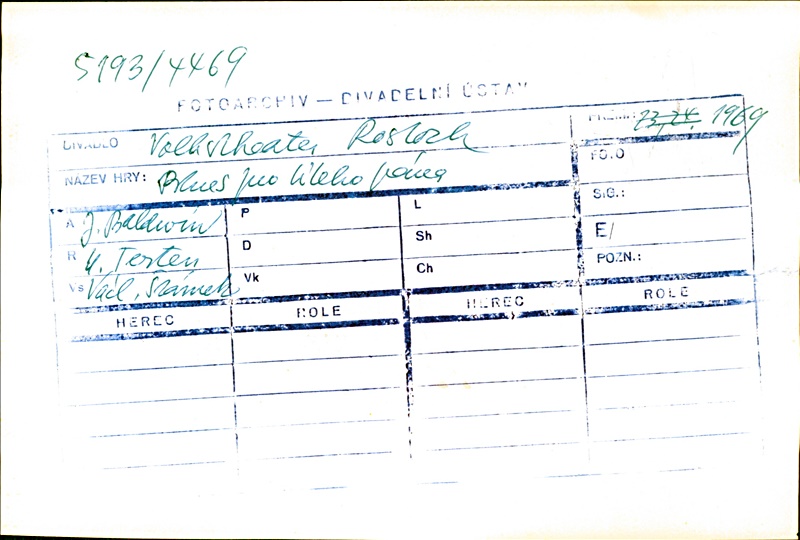 5193/4469
FOTOARCHIV — DIVADELNÍ ÚSTAV
DIVADLO Volkstheater Rostock
PREM.: 1969
NÁZEV HRY: Blues pro bílého pána
FOTO
A J. Baldwin P L SIG.:
R Sh E/
D
Vs Václ. Vk Ch POZN.:
HEREC ROLE HEREC ROLE